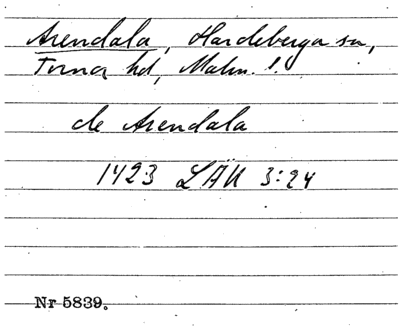 Arendala, Hardeberga sn,
Torna hd, Malm. l.
de Arendala
1423 LÄU 3:24
Nr 5839.